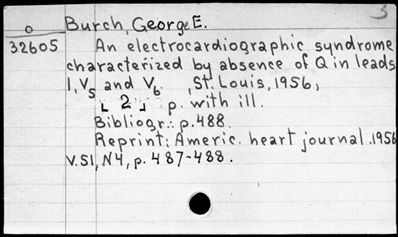 3
O Burch, George E.
32605 An electrocardiographic syndrome
characterized by absence of Q in leads
I, V5 and V6 , St. Louis, 1956,
[ 2 ] p. with ill.
Bibliogr.: p. 488.
Reprint: Americ. heart journal. 1956
V.51, N4, p. 487-488.